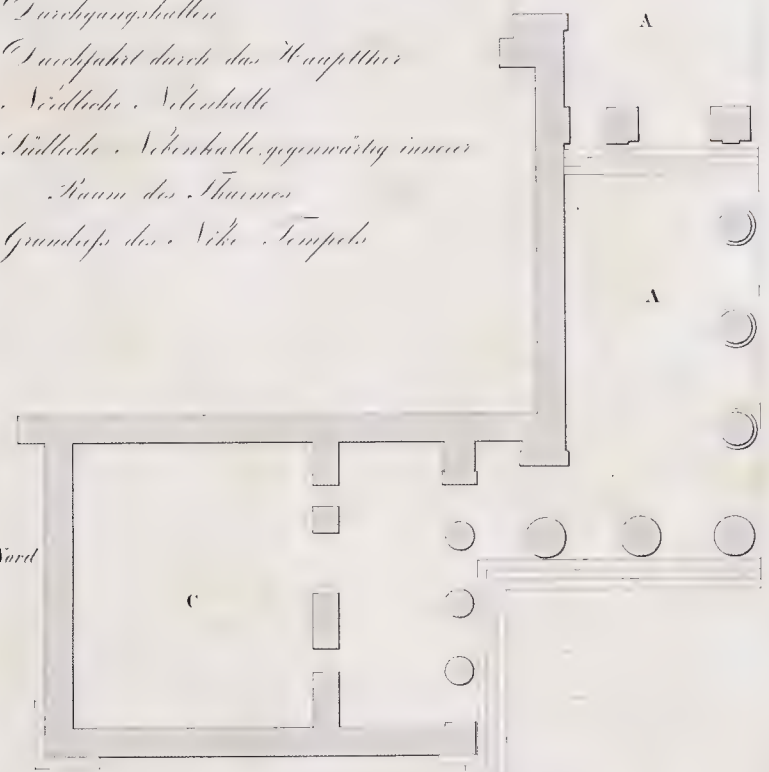 Durchgangshallen
Durchfahrt durch das Hauptthor
Nördliche Nebenhalle
Südliche Nebenhalle, gegenwärtig innerer
Raum des Thurmes
Grundriß des Nike Tempels
A
A
Nord
C